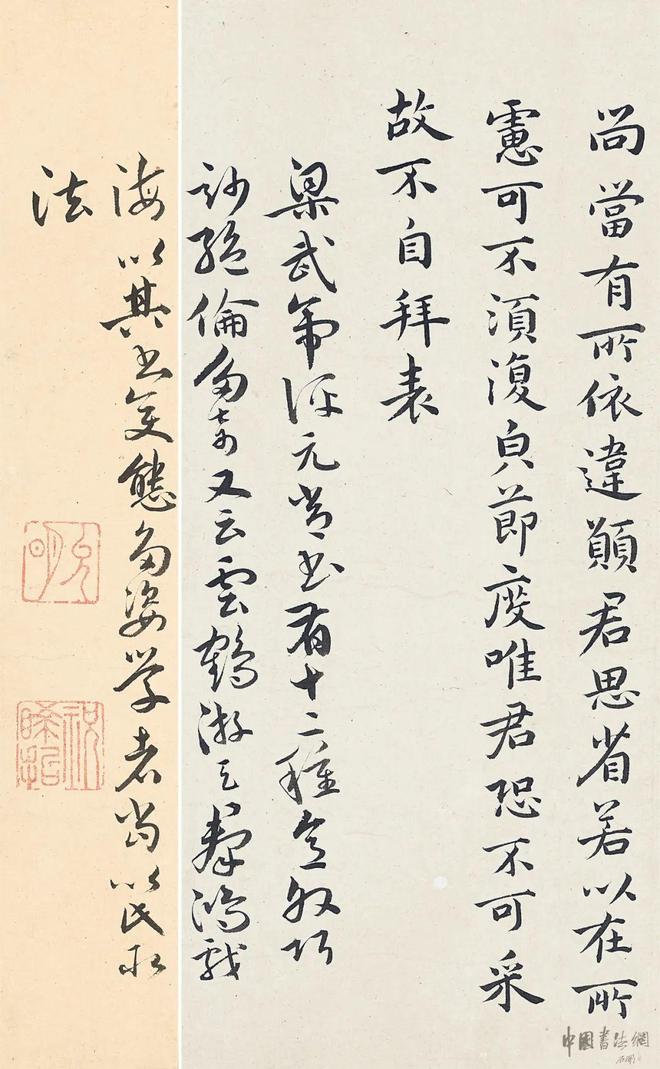 尚當有所依違願君思省若以在所
慮可不須復皃節度唯君恐不可采
故不自拜表
梁武帝評元常書有十二種意外巧
妙絕倫多奇又云雲鶴游天群鴻戲
海以其書變態多姿学者尚以
法
允明
中國書法網